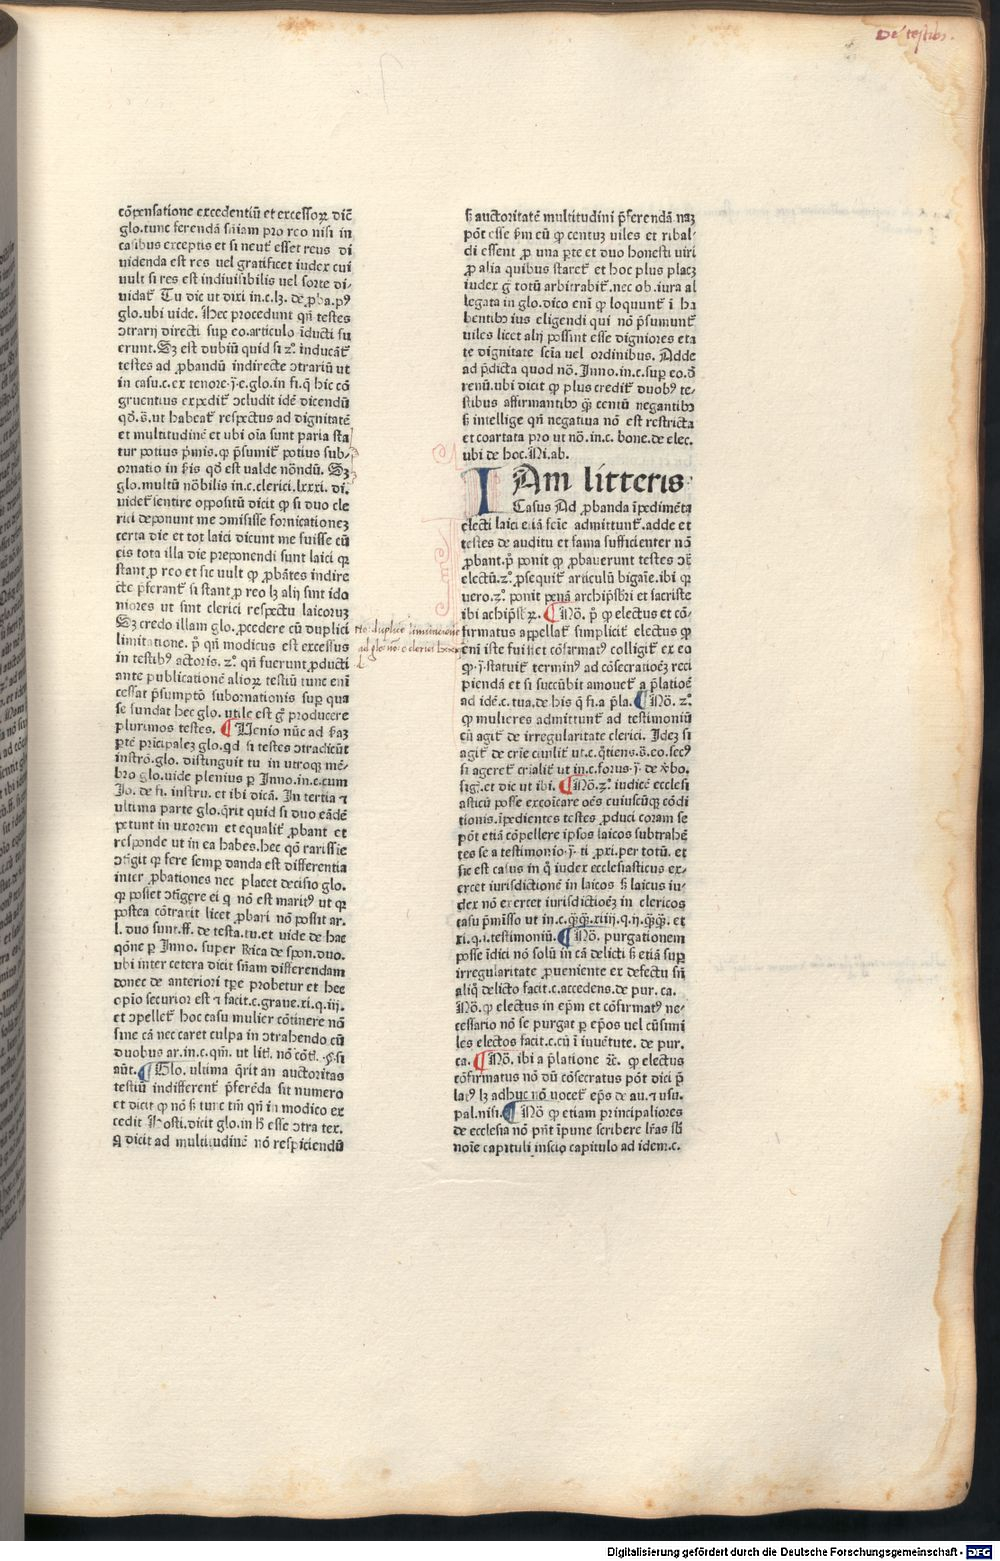 De testibꝫ.
cōpensatione excedentiū et excessoꝝ dic̄
glo.tunc ferendā sn̄iam pro reo nisi in
casibus exceptis et si neut̄ esset reus di
uidenda est res uel gratificet iudex cui
uult si res est indiuisibilis uel sorte di-
uidat̄ Tu dic ut dixi in.c.lꝫ. de ꝓba.p⁹
glo.ubi uide. Hec procedunt qn̄ testes
ↄtrarij directi sup eo.articulo īducti fu
erunt.Sꝫ est dubiū quid si zº. inducāt̄
testes ad ꝓbandū indirecte ↄtrariū ut
in casu.c.ex tenore.j.e.glo.in fi.q̄ hic cō
gruentius expedit̄ ↄcludit idē dicendū
qð.s̄.ut habeat̄ respectus ad dignitatē
et multitudinē et ubi oīa sunt paria sta
tur potius p̄mis.ꝙ p̄sumit̄ potius sub-
ornatio in ħis qð est ualde nōndū. Sꝫ
glo.multū nōbilis in.c.clerici.lxxxi. di.
uidet̄ sentire oppositū dicit ꝙ si duo cle
rici deponunt me ↄmisisse fornicationeꝫ
certa die et tot laici dicunt me fuisse cū
eis tota illa die preponendi sunt laici qꝛ
stant ꝓ reo et sic uult ꝙ ꝓbātes indire
cte p̄ferant̄ si stant ꝓ reo lꝫ alij sint ido
niores ut sint clerici respectu laicoruꝫ
Sꝫ credo illam glo. ꝓcedere cū duplici
limitatione. p̄ qn̄ modicus est excessus
in testibꝰ actoris. zº. qn̄ fuerunt ꝓducti
ante publicationē alioꝝ testiū tunc enī
cessat p̄sumptō subornationis sup qua
se fundat hec glo. utile est gͦ producere
plurimos testes. ¶ Uenio nūc ad ħaꝫ
ꝑtē pricipaleꝫ glo.qd si testes ↄtradicūt
instrō.glo. distinguit tu in utroqꝫ mē-
bro glo.uide plenius ꝑ Inno.in.c.cum
Jo. de fi. instru. et ibi dicā. In tertia ⁊
ultima parte glo.q̄rit quid si duo eādē
petunt in uxorem et equalit̄ ꝓbant et
responde ut in ca habes.hec qō rarissīe
ↄtīgit qꝛ fere semꝑ danda est differentia
inter ꝓbationes nec placet decisio glo.
ꝙ posset ↄtīgere ei q̄ nō est maritꝰ ut qꝛ
postea cōtraxit licet ꝓbari nō possit ar.
l. duo sunt.ff. de testa.tu.et uide de hac
qōne ꝑ Inno. super Rica de spon.duo.
ubi inter cetera dicit sn̄iam differendam
donec de anteriori tꝑe probetur et hec
opīo securior est ⁊ facit.c.graue.xi.q.iij.
et ↄpellet̄ hoc casu mulier cōtinere nō
sine cā nec caret culpa in ↄtrahendo cū
duobus ar.in.c.qm̄. ut lit̄. nō cōt̄. .§.si
aūt.¶ Glo. ultima q̄rit an auctoritas
testiū indifferent̄ p̄ferēda sit numero
et dicit ꝙ nō ꝭ tunc tm̄ qn̄ in modico ex
cedit Hosti.dicit glo.in ħ esse ↄtra tex.
q̄ dicit ad multitudinē nō respiciendū
ꝭ auctoritatē multitudini p̄ferendā naꝫ
pōt esse ꝭm eū ꝙ centuꝫ uiles et ribal-
di essent ꝓ una ꝑte et duo honesti uiri
ꝓ alia quibus staret̄ et hoc plus placꝫ
iudex gͦ totū arbitrabit̄.nec ob.iura al
legata in glo.dico enī ꝙ loquunt̄ ī ha
bentibꝰ ius eligendi qui nō p̄sumunt̄
uiles licet alij possint esse digniores eta
te dignitate scīa uel ordinibus. Adde
ad p̄dicta quod nō. Inno.in.c.sup eo.ð
renū.ubi dicit ꝙ plus credit̄ duobꝰ te-
stibus affirmantibꝫ q̄ꝫ centū negantibꝫ
ꝭ intellige qn̄ negatiua nō est restricta
et coartata pro ut nō.in.c. bone.de elec.
ubi de hoc.Ni.ab.
IAm litteris.
Casus Ad ꝓbanda īpedimēta
electi laici etiā feīe admittunt̄.adde et
testes de auditu et fama sufficienter nō
ꝓbant.p̄ ponit ꝙ ꝓbauerunt testes ↄ̄
electū.zº.ꝓsequit̄ articulū bigaīe.ibi qꝛ
uero.zº. ponit penā archip̄sbri et sacriste
ibi achip̄sƀꝝ. ¶ Nō. p̄ ꝙ electus et cō-
firmatus appellat̄ simplicit̄ electus ꝙ
enī iste fuisset cōfirmatꝰ colligit̄ ex eo
ꝙ.j.statuit̄ terminꝰ ad cōsecratioēꝫ reci
piendā et si succūbit amouet̄ a p̄latioē
ad idē.c.tua.de his q̄ fi.a p̄la. ¶ Nō. zº.
ꝙ mulieres admittunt̄ ad testimoniū
cū agit̄ de irregularitate clerici. Ideꝫ si
agit̄ de crīe ciuilit̄ ut.c.q̄tiens.s̄.eo.secꝰ
si ageret̄ crīalit̄ ut in.c.forus.j. de ꝟbo.
sigͥ.et dic ut ibi. ¶ Nō.zº.iudicē ecclesi
asticū posse excoīcare oēs cuiuscūqꝫ cōdi
tionis.īpedientes testes ꝓduci coram se
pōt etiā cōpellere ipsos laicos subtrahē
tes se a testimonio.j. ti ꝓxi.per totū. et
sic est casus in q̄ iudex ecclesiasticus ex-
ercet iurisdictionē in laicos ꝭ laicus iu-
dex nō exercet iurisdictioēꝫ in clericos
casu p̄misso ut in.c.q̄ꝙ̄.xiiij.q.ij.q̄ꝙ̄. et
xi.q.i.testimoniū.¶ Nō. purgationem
posse īdici nō solū in cā delicti ꝭ etiā suꝑ
irregularitate ꝓueniente ex defectu sn̄
aliq̄ delicto facit.c.accedens.de pur. ca.
Nō.ꝙ electus in ep̄m et cōfirmatꝰ ne-
cessario nō se purgat ꝑ ep̄os uel cū simi
les electos facit.c.cū ī iuuētute. de pur.
ca. ¶ Nō. ibi a p̄latione ⁊c̄. ꝙ electus
cōfirmatus nō dū cōsecratus pōt dici p̄
latꝰ lꝫ adhuc nō uocet̄ ep̄s de au.⁊ usu.
pal.nisi.¶ Nō ꝙ etiam principaliores
de ecclesia nō pn̄t īpune scribere lr̄as sƀ
noīe capituli inscio capitulo ad idem.c.
Digitalisierung gefördert durch die Deutsche Forschungsgemeinschaft - DFG